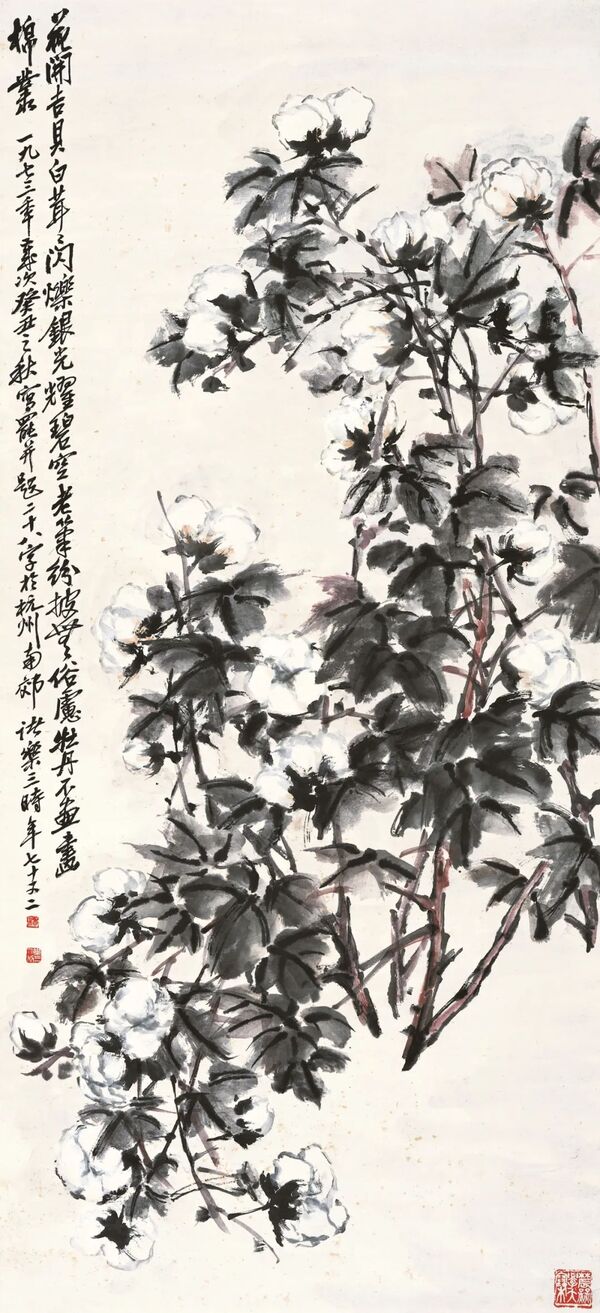 花開吉貝白茸々閃爍銀光耀碧空老筆紛披無俗慮牡丹不畫畫
棉叢 一九七三年歲次癸丑之秋寫罷并題二十八字於杭州南郊 諸樂三時年七十又二